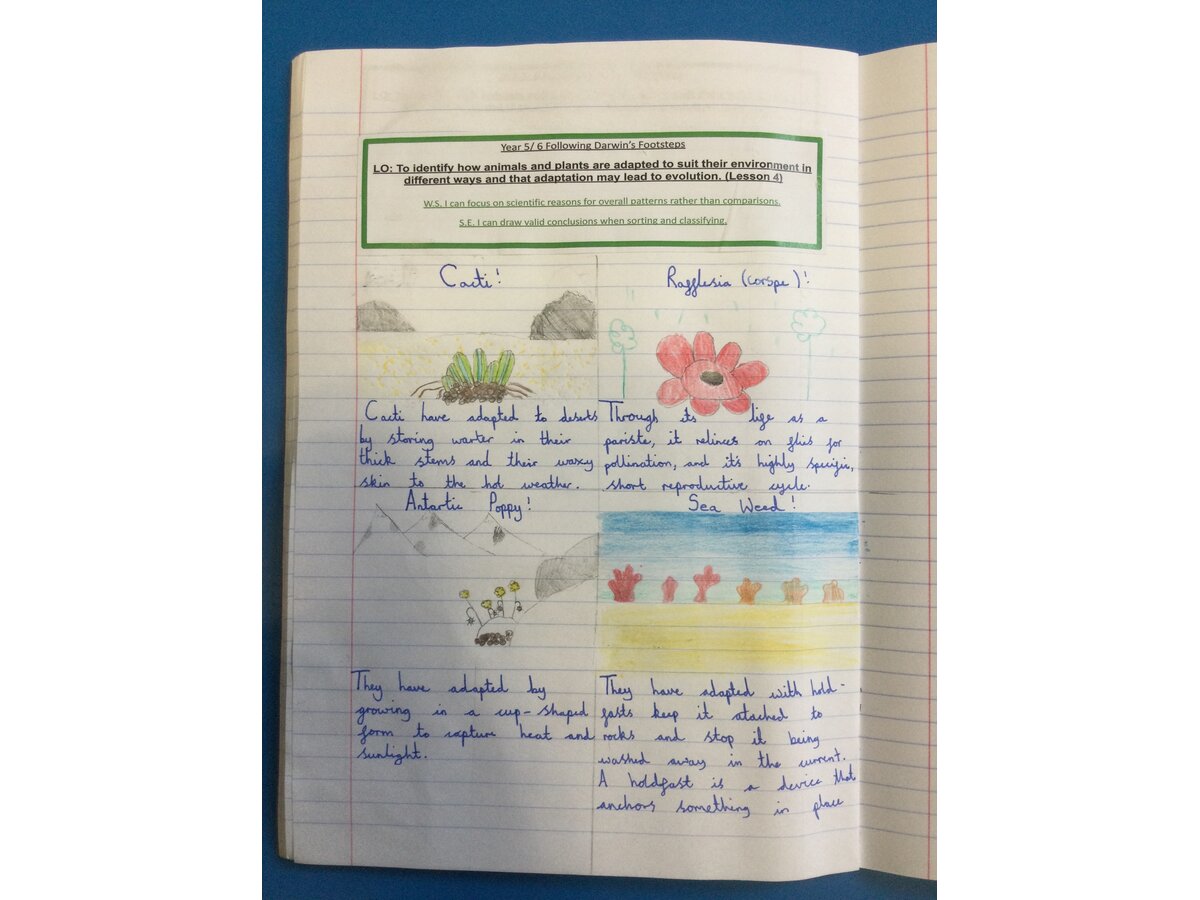 Year 5/ 6 Following Darwin's Footsteps
LO: To identify how animals and plants are adapted to suit their environment in
different ways and that adaptation may lead to evolution. (Lesson 4)
W.S. I can focus on scientific reasons for overall patterns rather than comparisons.
S.E. I can draw valid conclusions when sorting and classifying.
Cacti!
Cacti have adapted to deserts
by storing warter in their
thick stems and their waxy
skin to the hot weather.
Rafflesia (corspe)!
Through its life as a
pariste, it relinces on flies for
pollination, and it's highly specific,
short reproductive cycle.
Antartic Poppy!
They have adapted by
growing in a cup-shaped
form to capture heat and
sunlight.
Sea Weed!
They have adapted with hold-
fasts keep it attached to
rocks and stop it being
washed away in the current.
A holdfast is a device that
anchors something in place